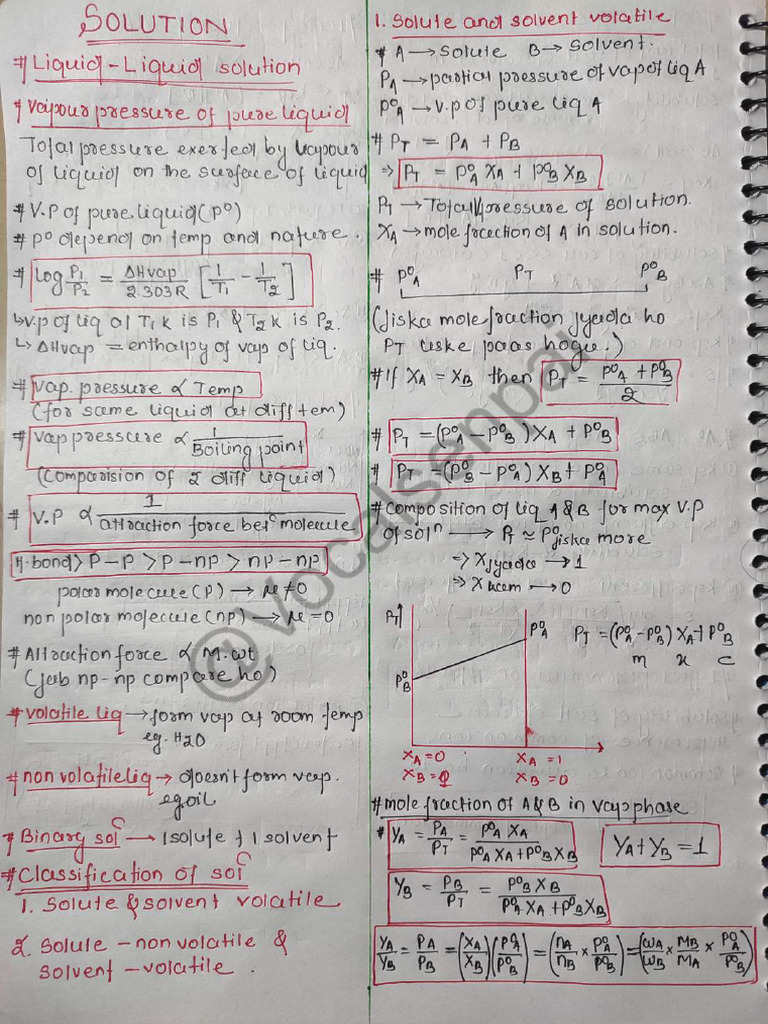 SOLUTION
# Liquid-Liquid solution
# Vapour pressure of pure liquid
Total pressure exerted by vapour
of liquid on the surface of liquid
# V.P of pure liquid (P⁰)
# P⁰ depend on temp and nature.
# log P₁/P₂ = ΔHvap/2.303R [1/T₁ - 1/T₂]
↳ V.p of liq at T₁ K is P₁ & T₂ K is P₂.
↳ ΔHvap = enthalpy of vap of liq.
# vap. pressure ∝ Temp
(for same liquid at diff tem)
# vap pressure ∝ 1/Boiling point
(Comparision of 2 diff liquid)
# V.P ∝ 1/attraction force betⁿ molecule
H.bond > P-P > P-np > np-np
polar molecule (P) → μ≠0
non polar molecule (np) → μ=0
# Attraction force ∝ M.wt
(jab np-np compare ho)
# volatile liq → form vap at room temp
eg. H₂O
# non volatile liq → doesn't form vap.
eg oil
# Binary solⁿ → 1 solute + 1 solvent
# Classification of solⁿ
1. Solute & solvent volatile
2. Solute - non volatile &
solvent - volatile.
1. Solute and solvent volatile
# A → solute B → solvent.
P_A → partial pressure of vap of liq A
P⁰_A → v.p of pure liq A
# P_T = P_A + P_B
⇒ P_T = P⁰_A X_A + P⁰_B X_B
P_T → Total pressure of solution.
X_A → mole fraction of A in solution.
# P⁰_A P_T P⁰_B
(Jiska mole fraction jyada ho
P_T uske paas hogu.)
# If X_A = X_B then P_T = P⁰_A + P⁰_B / 2
# P_T = (P⁰_A - P⁰_B) X_A + P⁰_B
# P_T = (P⁰_B - P⁰_A) X_B + P⁰_A
# Composition of liq A & B for max V.P
of solⁿ → P_T ≈ P⁰ jiska more
⇒ X jyada → 1
⇒ X kam → 0
P_T
P⁰_A P_T = (P⁰_A - P⁰_B) X_A + P⁰_B
P⁰_B m x c
X_A = 0 X_A = 1
X_B = X_B = 0
# mole fraction of A & B in vap phase
# Y_A = P_A/P_T = P⁰_A X_A / P⁰_A X_A + P⁰_B X_B Y_A + Y_B = 1
Y_B = P_B/P_T = P⁰_B X_B / P⁰_A X_A + P⁰_B X_B
Y_A/Y_B = P_A/P_B = (X_A/X_B)(P⁰_A/P⁰_B) = (n_A/n_B × P⁰_A/P⁰_B) = (ω_A/ω_B × M_B/M_A × P⁰_A/P⁰_B)
@vocalsenpai